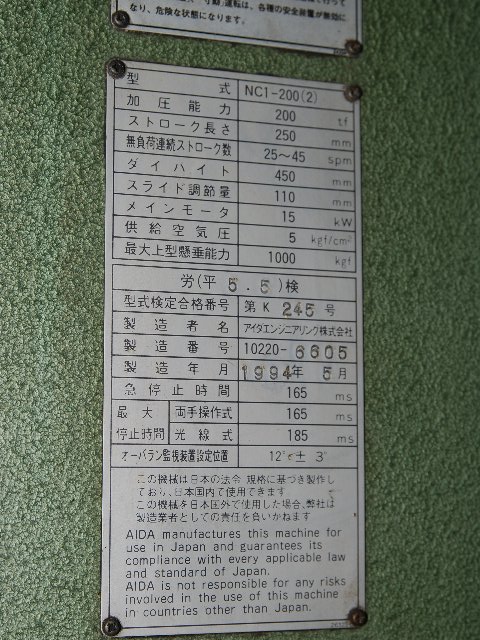 運転は、各種の安全装置が無効に
なり、危険な状態になります。
型式 NC1-200(2)
加圧能力 200 tf
ストローク長さ 250 mm
無負荷連続ストローク数 25~45 spm
ダイハイト 450 mm
スライド調節量 110 mm
メインモータ 15 kW
供給空気圧 5 kgf/cm²
最大上型懸垂能力 1000 kgf
労(平 5.5)検
型式検定合格番号 第 K 245 号
製造者名 アイダエンジニアリング株式会社
製造番号 10220-6605
製造年月 1994年 5月
急停止時間 165 ms
最大停止時間 両手操作式 165 ms
光線式 185 ms
オーバラン監視装置設定位置 12°± 3°
この機械は日本の法令 規格に基づき製作し
ており、日本国内で使用できます
この機械を日本国外で使用した場合、弊社は
製造業者としての責任を負いかねます
AIDA manufactures this machine for
use in Japan and guarantees its
compliance with every applicable law
and standard of Japan.
AIDA is not responsible for any risks
involved in the use of this machine
in countries other than Japan.